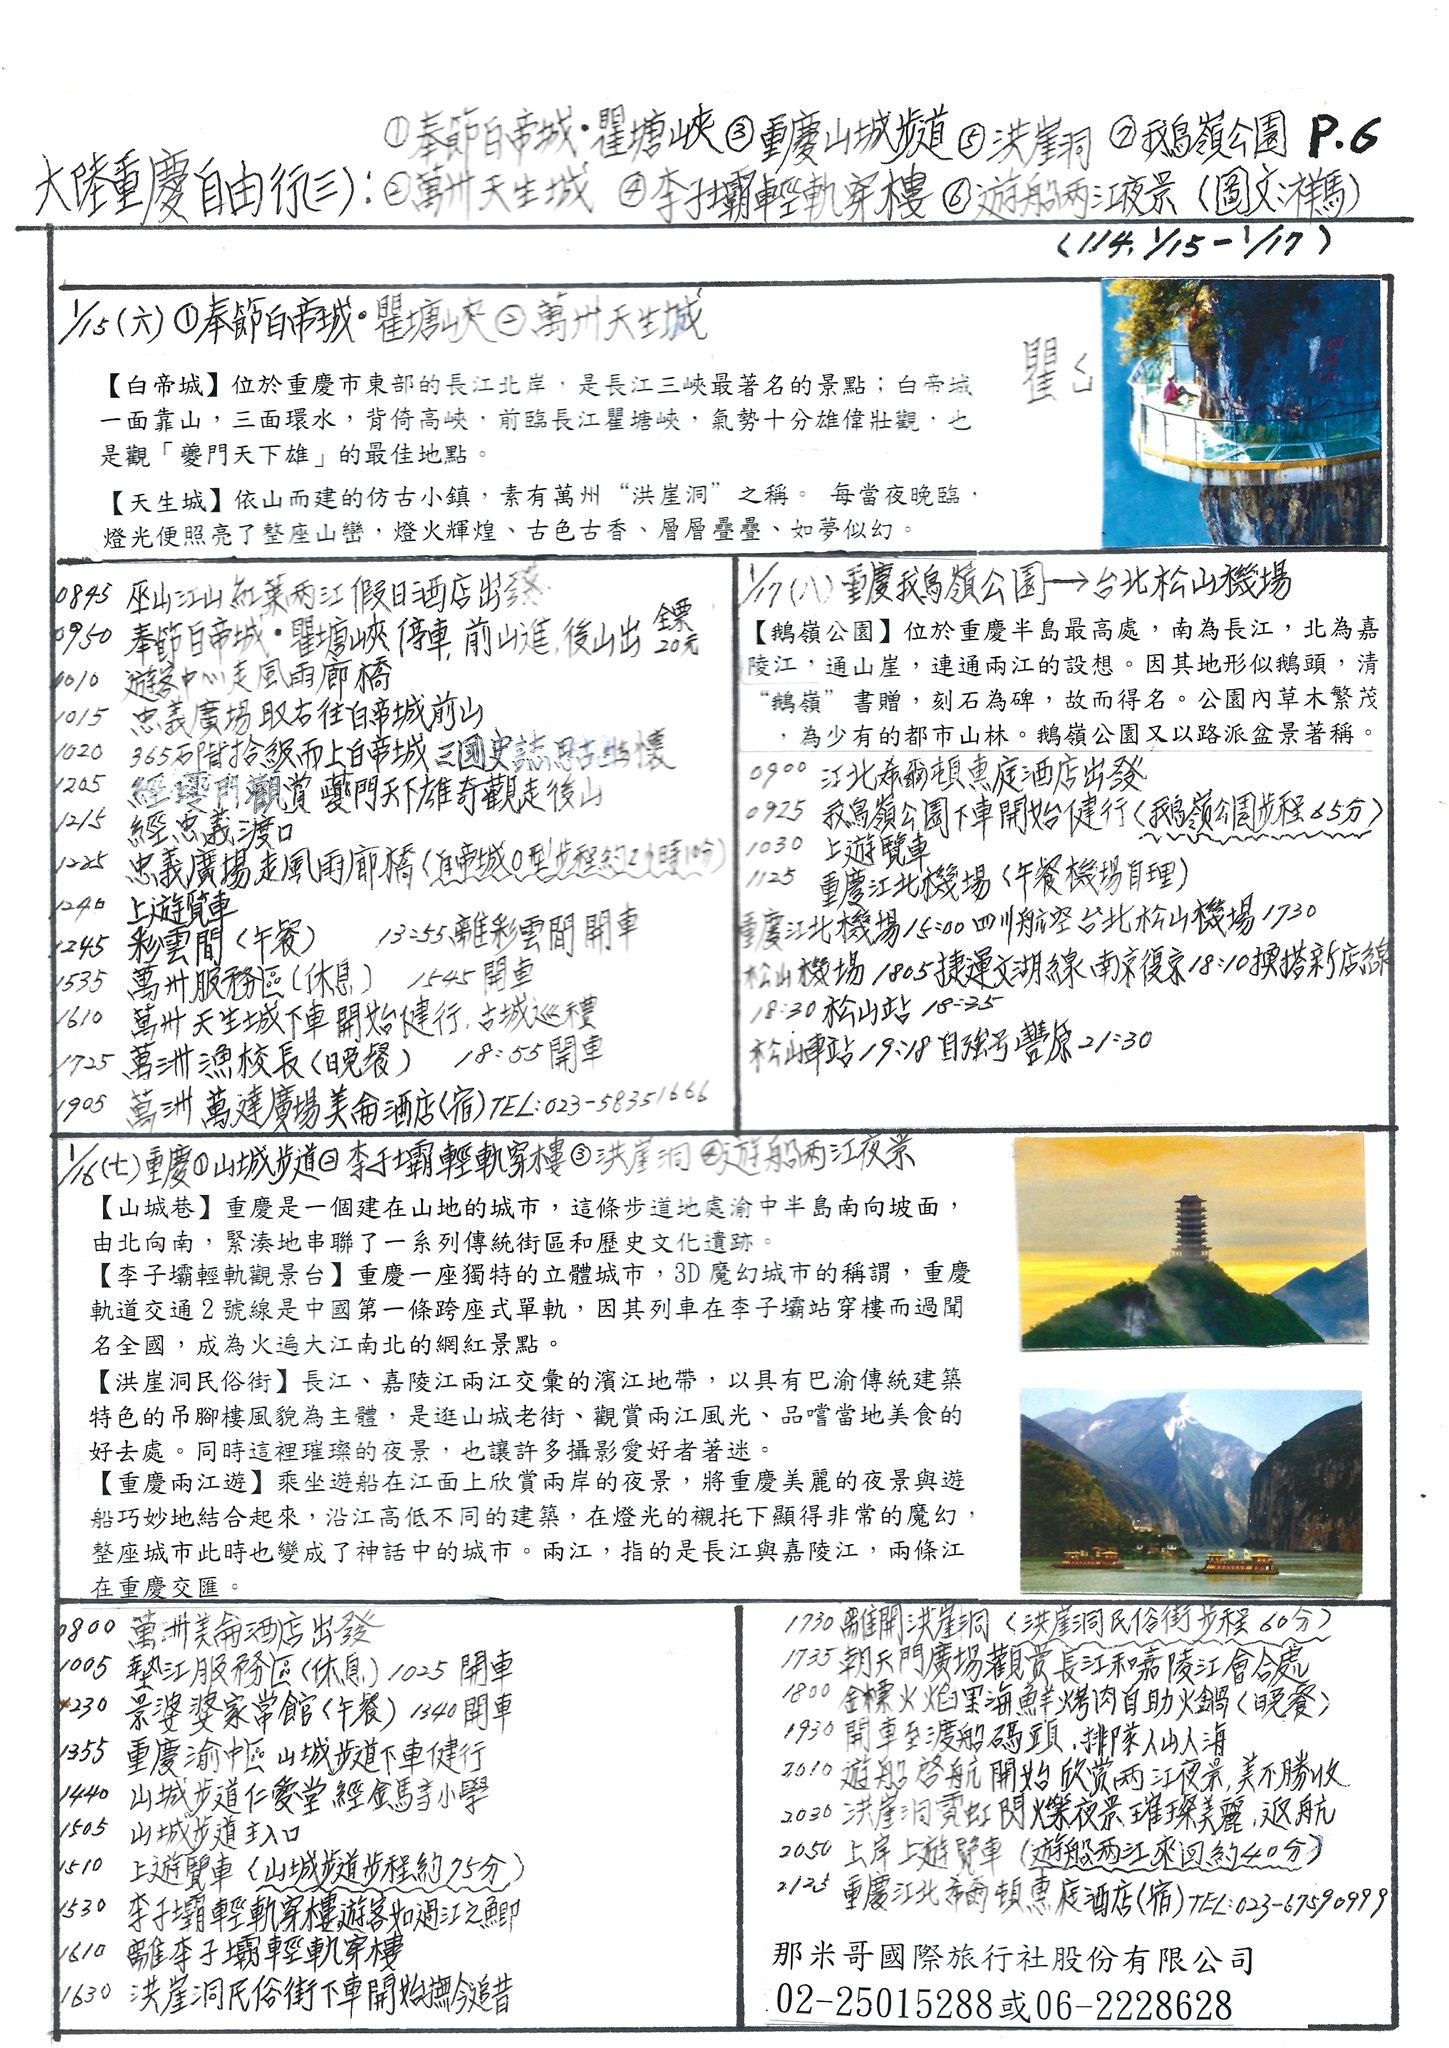 ①奉節白帝城·瞿塘峽③重慶山城步道⑤洪崖洞⑦鵝嶺公園 P.6
大陸重慶自由行(三):②萬州天生城 ④李子壩輕軌穿樓⑥遊船兩江夜景(圖文:祥馬)
(114.1/15-1/17)
1/15(六)①奉節白帝城·瞿塘峽②萬州天生城
瞿山
【白帝城】位於重慶市東部的長江北岸，是長江三峽最著名的景點；白帝城
一面靠山，三面環水，背倚高峽，前臨長江瞿塘峽，氣勢十分雄偉壯觀，也
是觀「夔門天下雄」的最佳地點。
【天生城】依山而建的仿古小鎮，素有萬州“洪崖洞”之稱。 每當夜晚臨，
燈光便照亮了整座山巒，燈火輝煌、古色古香、層層疊疊、如夢似幻。
0845 巫山江山紅葉兩江假日酒店出發
0950 奉節白帝城·瞿塘峽停車,前山進,後山出 全票20元
1010 遊客中心走風雨廊橋
1015 忠義廣場取右往白帝城前山
1020 365石階拾級而上白帝城三國史誌思古幽懷
1205 經夔門觀賞夔門天下雄奇觀走後山
1215 經忠義渡口
1225 忠義廣場走風雨廊橋(白帝城O型步程約2小時10分)
1240 上遊覽車
1245 彩雲間(午餐) 13:55離彩雲間開車
1535 萬州服務區(休息) 1545開車
1610 萬州天生城下車開始健行.古城巡禮
1725 萬洲漁校長(晚餐) 18:55開車
1905 萬洲萬達廣場美侖酒店(宿)TEL:023-58351666
1/17(八)重慶鵝嶺公園→台北松山機場
【鵝嶺公園】位於重慶半島最高處，南為長江，北為嘉
陵江，通山崖，連通兩江的設想。因其地形似鵝頭，清
“鵝嶺”書贈，刻石為碑，故而得名。公園內草木繁茂
，為少有的都市山林。鵝嶺公園又以路派盆景著稱。
0900 江北希爾頓惠庭酒店出發
0925 鵝嶺公園下車開始健行(鵝嶺公園步程65分)
1030 上遊覽車
1125 重慶江北機場(午餐機場自理)
重慶江北機場15:00四川航空台北松山機場1730
松山機場1805捷運文湖線,南京復京18:10換搭新店線
18:30松山站 18:35
松山車站19:18自強号豐原21:30
1/16(七)重慶①山城步道②李子壩輕軌穿樓③洪崖洞④遊船兩江夜景
【山城巷】重慶是一個建在山地的城市，這條步道地處渝中半島南向坡面，
由北向南，緊湊地串聯了一系列傳統街區和歷史文化遺跡。
【李子壩輕軌觀景台】重慶一座獨特的立體城市，3D魔幻城市的稱謂，重慶
軌道交通2號線是中國第一條跨座式單軌，因其列車在李子壩站穿樓而過聞
名全國，成為火遍大江南北的網紅景點。
【洪崖洞民俗街】長江、嘉陵江兩江交彙的濱江地帶，以具有巴渝傳統建築
特色的吊腳樓風貌為主體，是逛山城老街、觀賞兩江風光、品嚐當地美食的
好去處。同時這裡璀璨的夜景，也讓許多攝影愛好者著迷。
【重慶兩江遊】乘坐遊船在江面上欣賞兩岸的夜景，將重慶美麗的夜景與遊
船巧妙地結合起來，沿江高低不同的建築，在燈光的襯托下顯得非常的魔幻，
整座城市此時也變成了神話中的城市。兩江，指的是長江與嘉陵江，兩條江
在重慶交匯。
0800 萬洲美侖酒店出發
1005 墊江服務區(休息) 1025開車
1230 景婆婆家常館(午餐) 1340開車
1355 重慶渝中區山城步道下車健行
1440 山城步道仁愛堂經金馬寺小學
1505 山城步道主入口
1510 上遊覽車(山城步道步程約75分)
1530 李子壩輕軌穿樓遊客如過江之鯽
1610 離李子壩輕軌穿樓
1630 洪崖洞民俗街下車開始撫今追昔
1730 離開洪崖洞(洪崖洞民俗街步程60分)
1735 朝天門廣場觀賞長江和嘉陵江會合處
1800 金標火焰里海鮮烤肉自助火鍋(晚餐)
1930 開車至渡船碼頭.排隊人山人海
2010 遊船啓航開始欣賞兩江夜景,美不勝收
2030 洪崖洞霓虹閃爍夜景璀璨美麗.返航
2050 上岸上遊覽車(遊船兩江來回約40分)
2125 重慶江北希爾頓惠庭酒店(宿)TEL:023-67590999
那米哥國際旅行社股份有限公司
02-25015288或06-2228628